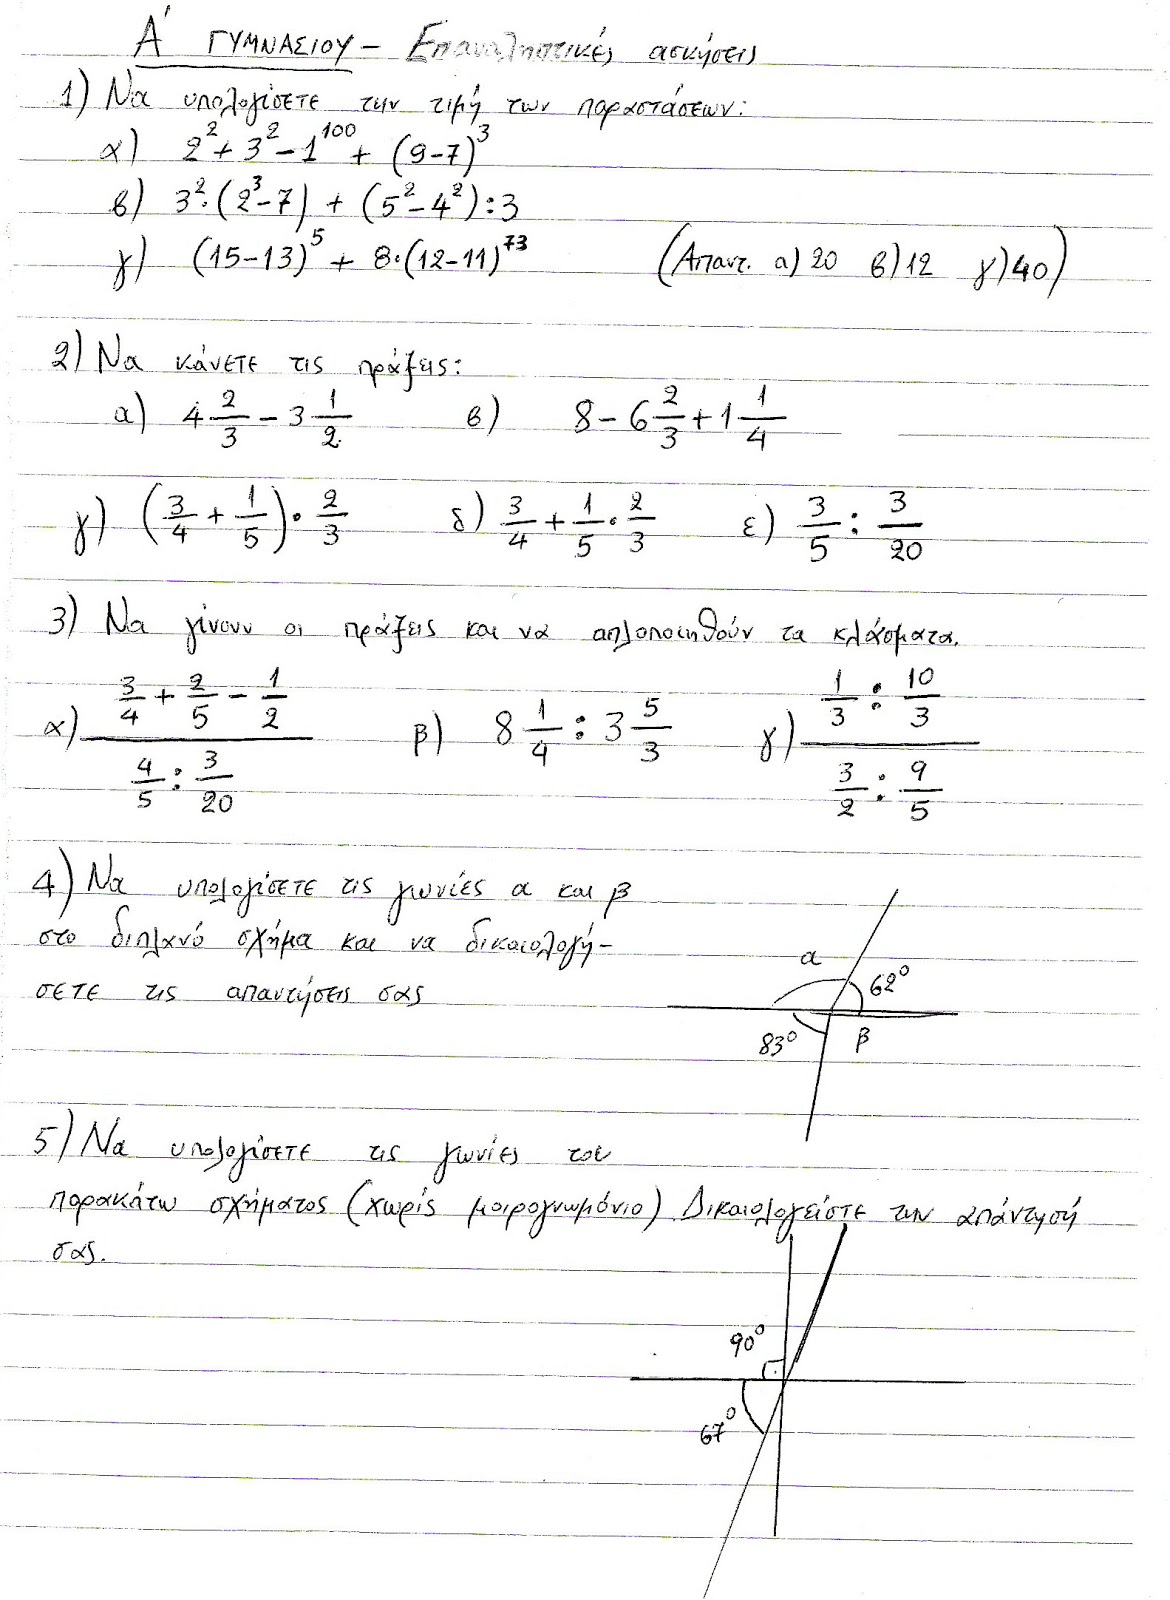 Α΄ ΓΥΜΝΑΣΙΟΥ – Επαναληπτικές ασκήσεις
1) Να υπολογίσετε την τιμή των παραστάσεων:
α) 2² + 3² – 1¹⁰⁰ + (9-7)³
β) 3²·(2³-7) + (5²-4²):3
γ) (15-13)⁵ + 8·(12-11)⁷³ (Απαντ. α) 20 β) 12 γ) 40)
2) Να κάνετε τις πράξεις:
α) 4 2/3 – 3 1/2 β) 8 – 6 2/3 + 1 1/4
γ) (3/4 + 1/5)· 2/3 δ) 3/4 + 1/5 · 2/3 ε) 3/5 : 3/20
3) Να γίνουν οι πράξεις και να απλοποιηθούν τα κλάσματα.
α) (3/4 + 2/5 – 1/2) / (4/5 : 3/20) β) 8 1/4 : 3 5/3 γ) (1/3 : 10/3) / (3/2 : 9/5)
4) Να υπολογίσετε τις γωνίες α και β
στο διπλανό σχήμα και να δικαιολογή-
σετε τις απαντήσεις σας
α
62°
83°
β
5) Να υπολογίσετε τις γωνίες του
παρακάτω σχήματος (χωρίς μοιρογνωμόνιο) Δικαιολογείστε την απάντησή
σας.
90°
67°